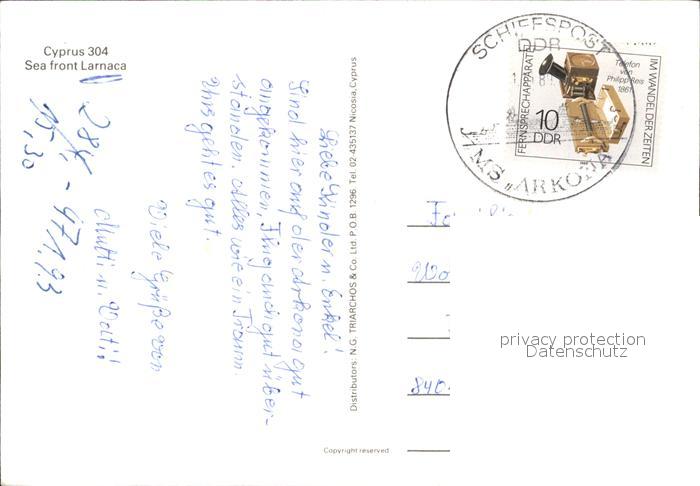 Cyprus 304
Sea front Larnaca
Liebe Kinder u. Enkel!
Sind hier auf der Arkona gut
angekommen, Flug auch gut über-
standen. Alles wie ein Traum.
Uns geht es gut.
Viele Grüße von
Mutti u. Vati!
Distributors: N.G. TRIARCHOS & Co. Ltd. P.O.B. 1296. Tel. 02-435137 Nicosia, Cyprus
Copyright reserved
SCHIFFSPOST
DDR
MS „ARKONA"
FERNSPRECHAPPARATE
IM WANDEL DER ZEITEN
Telefon
von
Philipp Reis
1861
10
DDR
840
privacy protection
Datenschutz